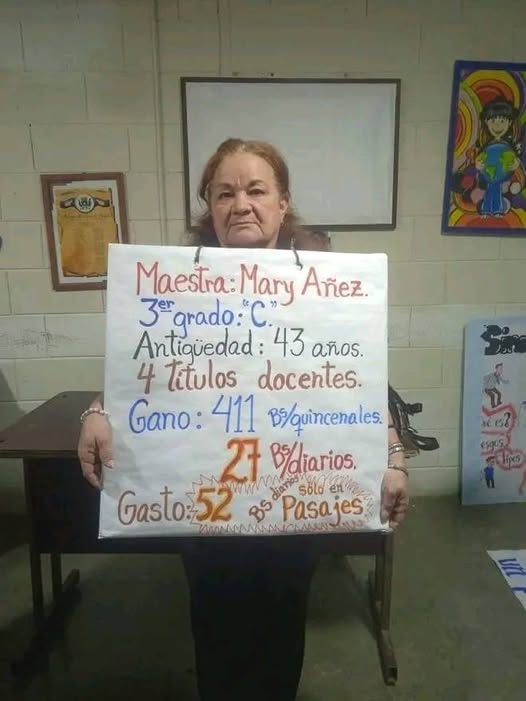 Maestra: Mary Añez.
3er grado: "C".
Antigüedad: 43 años.
4 Títulos docentes.
Gano: 411 Bs/quincenales.
27 Bs/diarios.
Gasto: 52 Bs diarios sólo en Pasajes